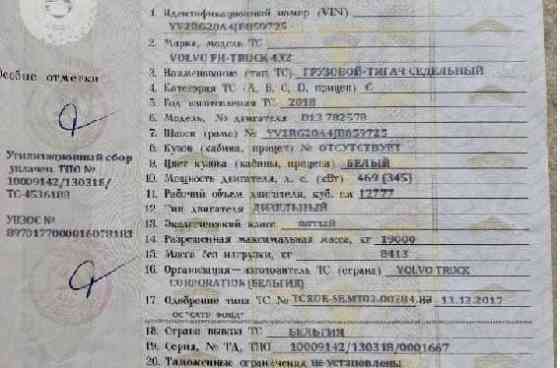 1. Идентификационный номер (VIN)
YV2RG20A4JB859725
2. Марка, модель ТС
VOLVO FH-TRUCK 4X2
Особые отметки
3. Наименование (тип ТС) ГРУЗОВОЙ-ТЯГАЧ СЕДЕЛЬНЫЙ
4. Категория ТС (A, B, C, D, прицеп) C
5. Год изготовления ТС 2018
6. Модель, № двигателя D13 782578
7. Шасси (рама) № YV2RG20A4JB859725
8. Кузов (кабина, прицеп) № ОТСУТСТВУЕТ
Утилизационный сбор
9. Цвет кузова (кабины, прицепа) БЕЛЫЙ
уплачен. ТПО №
10. Мощность двигателя, л. с. (кВт) 469 (345)
10009142/130318/
11. Рабочий объем двигателя, куб. см 12777
ТС-4536183
12. Тип двигателя ДИЗЕЛЬНЫЙ
13. Экологический класс пятый
УВЭОС №
14. Разрешенная максимальная масса, кг 19000
15. Масса без нагрузки, кг 8413
16. Организация–изготовитель ТС (страна) VOLVO TRUCK
CORPORATION (БЕЛЬГИЯ)
17. Одобрение типа ТС № от 13.12.2017
18. Страна вывоза ТС БЕЛЬГИЯ
19. Серия, № ТД, ТПО 10009142/130318/0001667
20. Таможенные ограничения не установлены